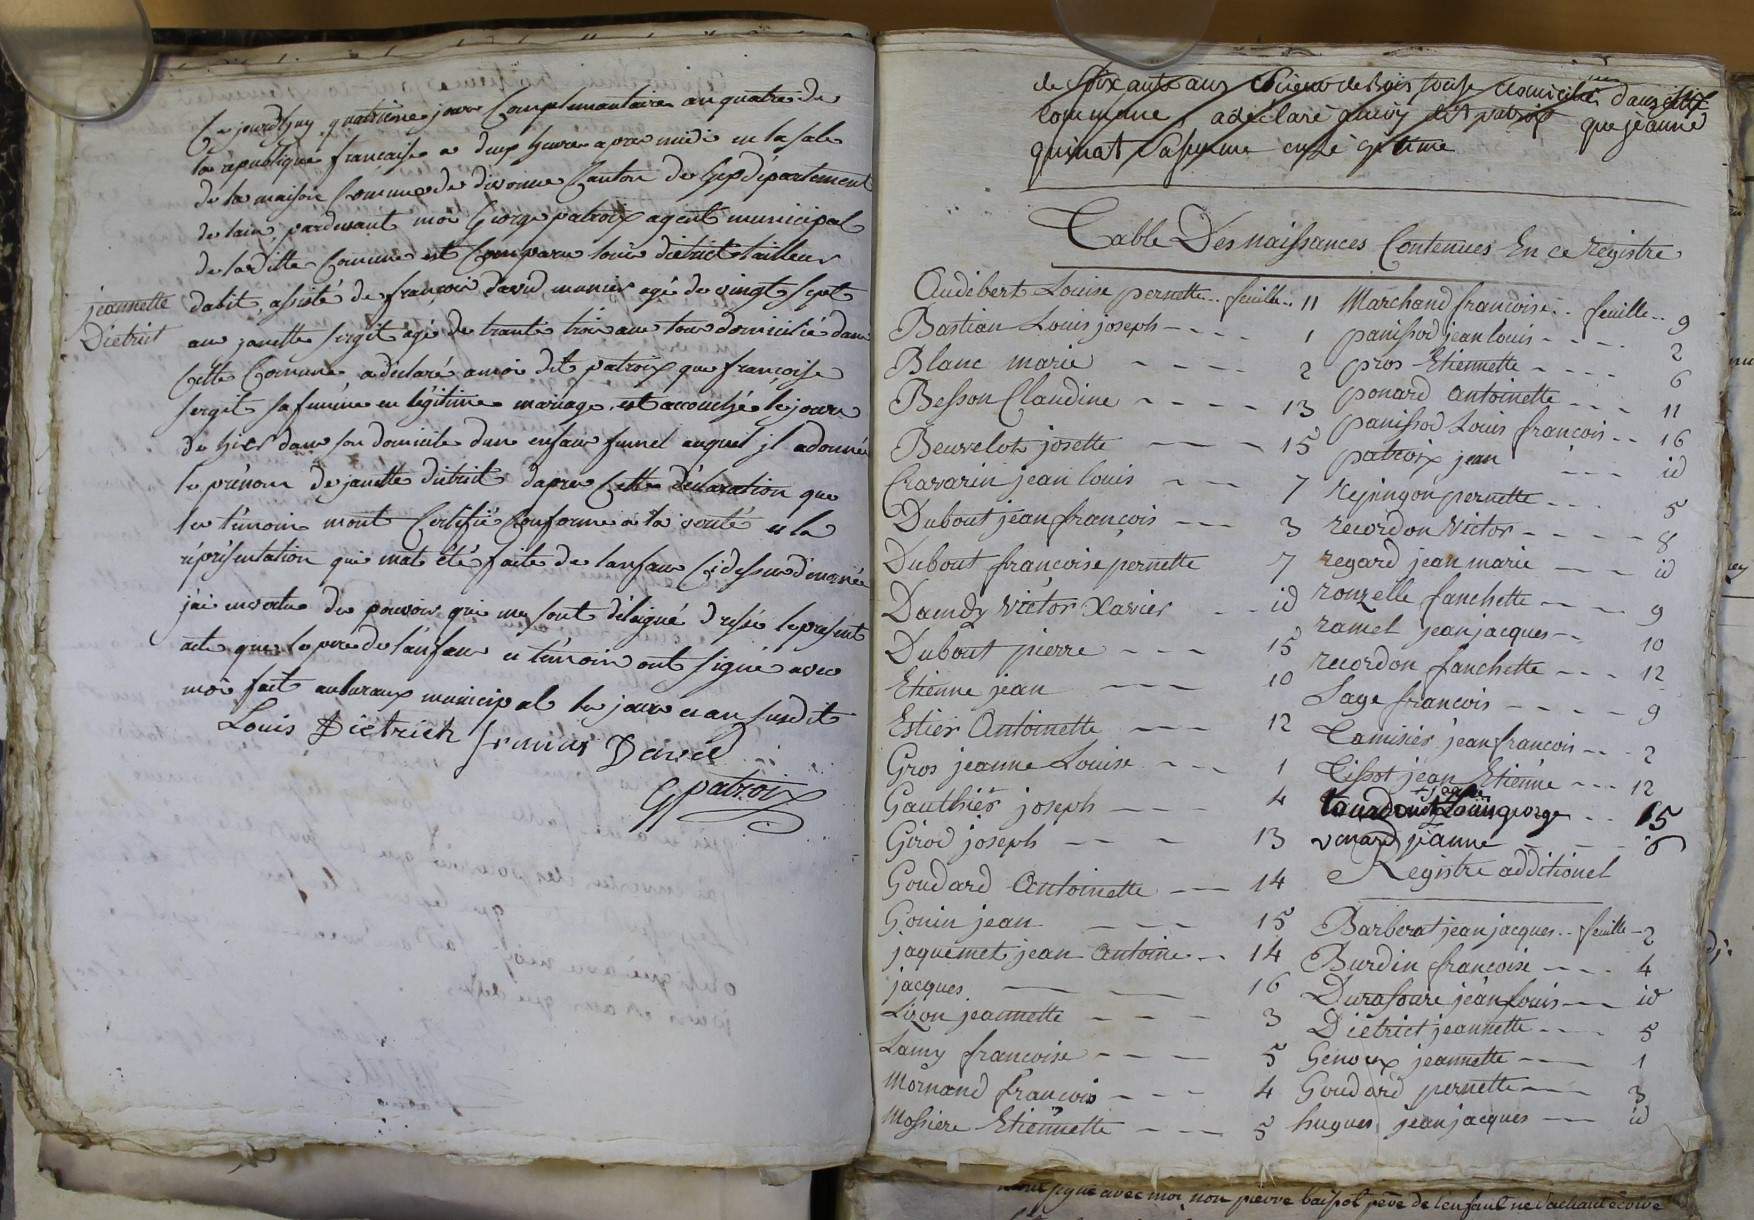 Ce jourdhuy quatrieme jour Complimantaire an quatre de
la republique francaise a deux heures apres midi en la sale
de la maison Commune de divonne Canton de Gex département
de lain, pardevant moi George patroix agent municipal
de laditte Commune est Comparu louis dietrict tailleur
jeannette
Dietrict
dabit, assisté de francois david, munier agé de vingt sept
ans janette sergit agé de trante trois ans tous domicilié dans
Cette Comune a déclaré a moi dit patroix que françoise
sergit sa femme en légitime mariage, est accouchée le jour
du hier dans son domicile dune enfans fumel auquel jl a donné
le prénom de janette dietrict dapres Cette déclaration que
les témoins mont Certifié Conforme a la verité et la
réprésentation qui mat été faite de lenfans Cidessus dénomé
j'ai en vertu des pouvoirs qui me sont délégué drésé le présent
acte que le pere de l'anfans et témoins ont signé avec
moi fait au buraux municipal les jour et an susdit
Louis Dietrich francois David
G patroix
de soixante ans scieur de bois toise domicilié dans cette
commune, a déclaré a moi dit patroix que jeanne
quinat sa femme en légitime
Table Des naissances Contenues En ce registre
Audebert Louise pernette .. feuille .. 11
Bastian Louis joseph - - - 1
Blanc marie - - - - 2
Besson Claudine - - - - 13
Beuvelot josette - - - 15
Chavarin jean louis - - - 7
Dubout jean françois - - - 3
Dubout francoise pernette 7
Damdy victor Xavier - - id
Dubout pierre - - - 15
Etienne jean - - - 10
Estier Antoinette - - - 12
Gros jeanne Louise - - - 1
Gauthier joseph - - - 4
Girod joseph - - - 13
Goudard Antoinette - - 14
Gonin jean - - - 15
jaquemet jean Antoine - - 14
jacques - - - 16
Lizon jeannette - - - 3
Lamy francoise - - - 5
Mornand francois - - - 4
Mossiere Etiennette - - - 5
Marchand francoise .. feuille .. 9
panissod jean louis - - - - 2
pros Etiennette - - - - 6
ponard antoinette - - - 11
panissod Louis francois - - 16
patroix jean - - - id
rejpingon pernette - - - 5
recordon victor - - - - 8
regard jean marie - - - id
ronzelle fanchette - - - 9
ramel jean jacques - - 10
recordon fanchette - - - 12
Sage francois - - - - 9
Tamisier jean francois - - - 2
Tissot jean Etienne - - - 12
george - - 15
venard jeanne - - - 6
Registre additionel
Barberat jean jacques .. feuille - 2
Burdin francoise - - - 4
Durafour jean Louis - - id
Dietrict jeannette - - - 5
Genoux jeannette - - 1
Goudard pernette - - 3
hugues jean jacques - - id
signé avec moi non pierre baissol père de lenfant ne sachant écrire